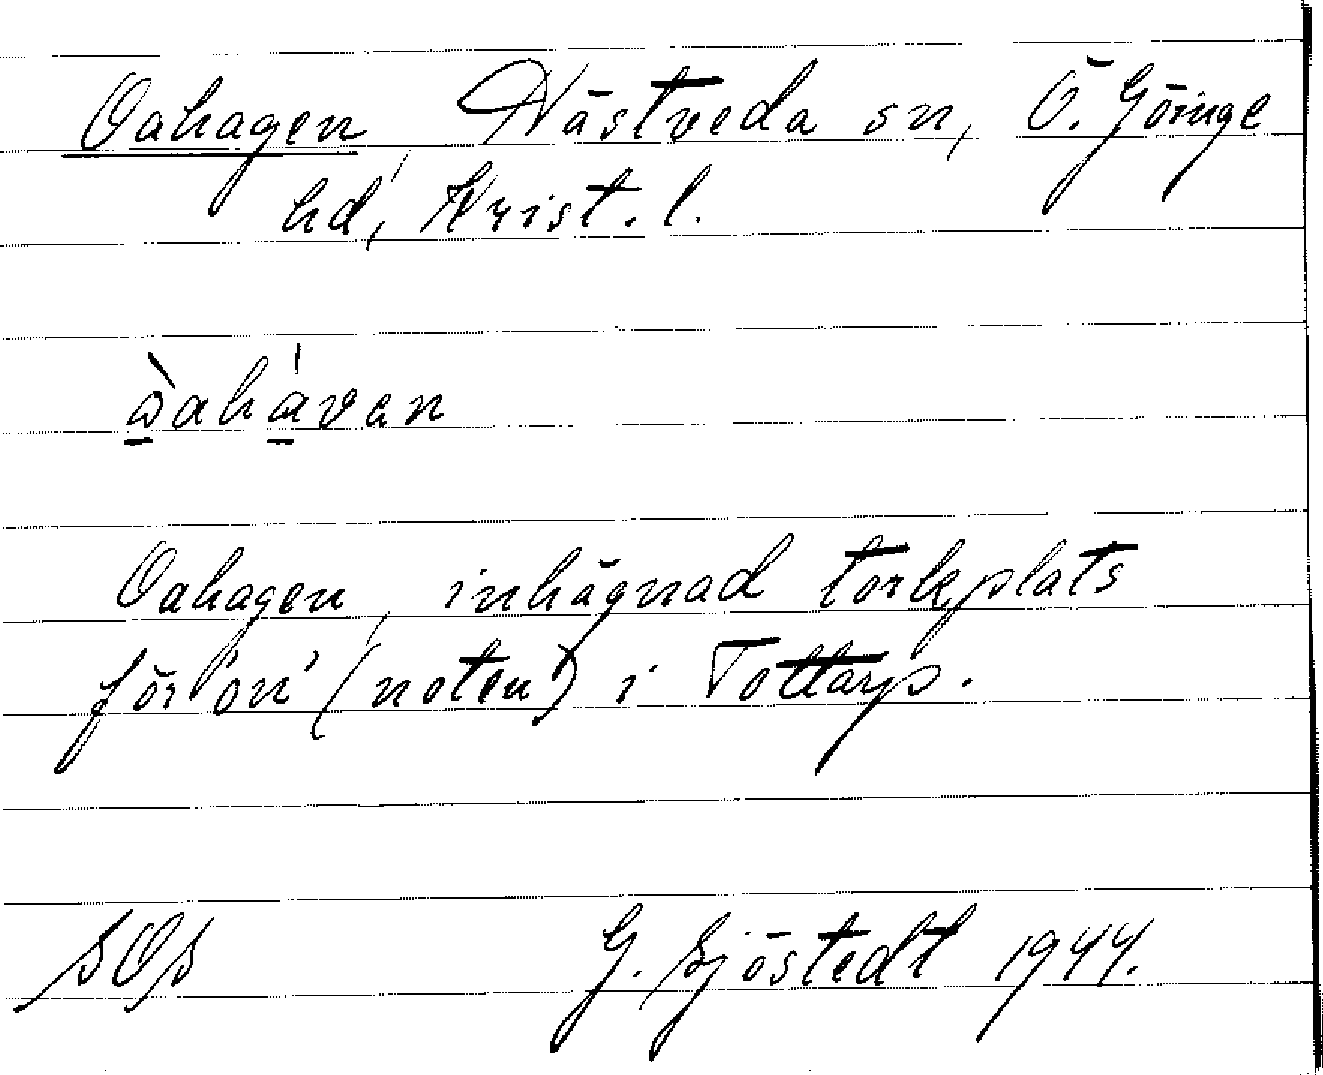 Oahagen, Västveda sn, Ö. Göinge
hd, Krist. l.
ɷ̀ahávan
Oahagen, inhägnad torkplats
för 'on' (noten) i Tottarp.
sOs G. Sjöstedt 1944.